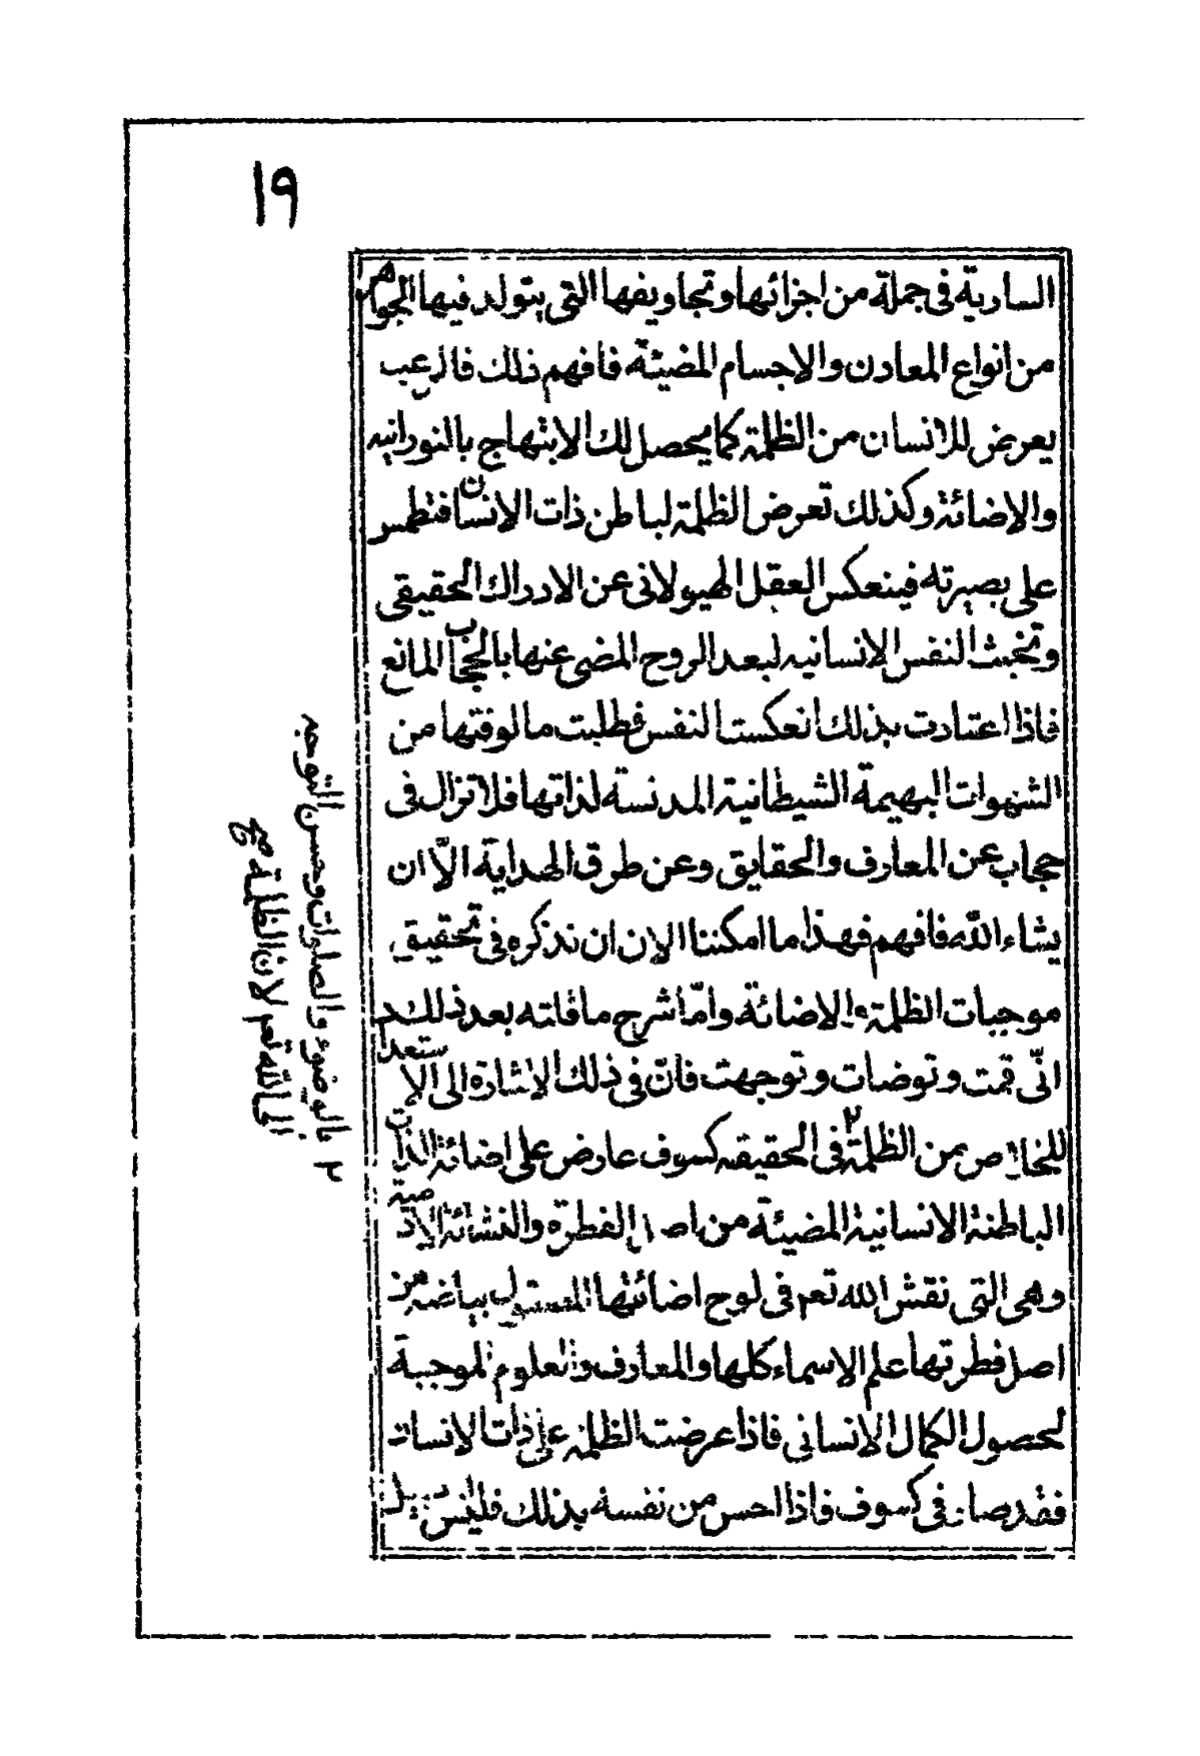 ١٩
السارية فى جملة من اجزائها وتجاويفها التى يتولد فيها الجواهر
من انواع المعادن والاجسام المضيئة فافهم ذلك فالرعب
يعرض للانسان من الظلمة كما يحصل لك الابتهاج بالنورانيه
والاضائة وكذلك تعرض الظلمة لباطن ذات الانسان فتطمس
على بصيرته فينعكس العقل الهيولانى عن الادراك الحقيقى
وتخبث النفس الانسانيه لبعد الروح المضى عنها بالحجاب المانع
فاذا اعتادت بذلك انعكست النفس فطلبت مالوفتها من
الشهوات البهيمة الشيطانية المدنسة لذاتها فلا تزال فى
حجاب عن المعارف والحقايق وعن طرق الهداية الاّ ان
يشاء الله فافهم فهذا ما امكننا الان ان نذكره فى تحقيق
موجبات الظلمة والاضائة وامّا شرح ماقاته بعد ذلك
انّى قمت وتوضات وتوجهت فانّ فى ذلك الاشارة الى الاستعداد
للخلاص من الظلمة ٢ فى الحقيقه كسوف عارض على اضائة الذات
الباطنة الانسانية المضيئة من اصل الفطرة والنشائة
وهى التى نقش الله تعم فى لوح اضائتها بياضه من
اصل فطرتها علم الاسماء كلها والمعارف والعلوم الموجبة
لحصول الكمال الانسانى فاذا عرضت الظلمة على ذات الانسان
فقد صار فى كسوف فاذا احس من نفسه بذلك
٢ بالوضوء والصلوات وحسن التوجه
الى الله تعم لان الظلمة صح